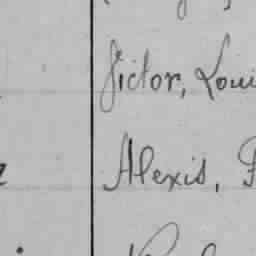 Victor, Loui
Alexis,